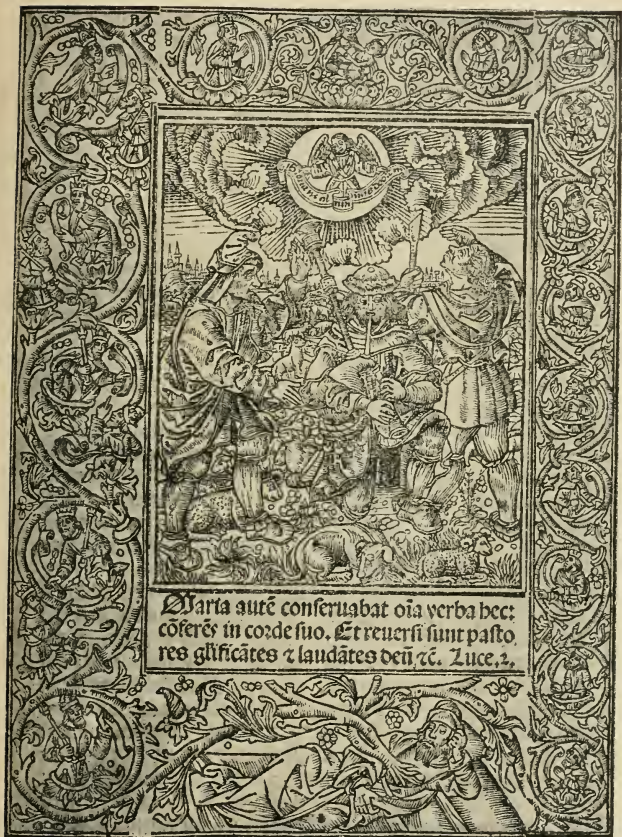 Maria autẽ conseruabat oĩa verba hec:
cõferẽs in corde suo. Et reuersi sunt pasto
res gl̃ificãtes ⁊ laudãtes deũ ⁊c̃. Luce.2.